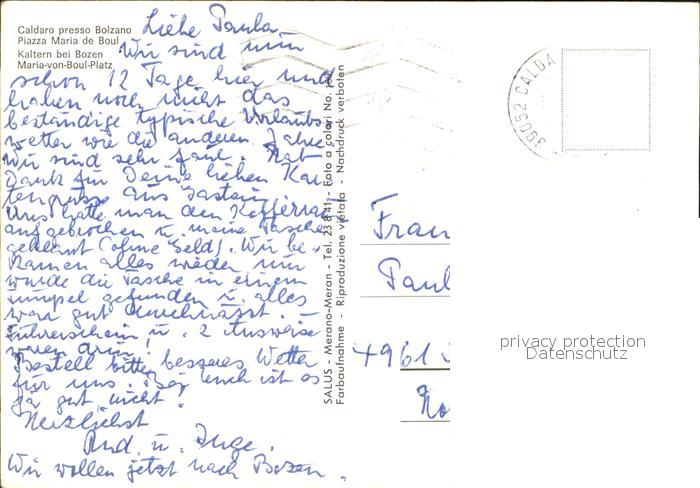 Caldaro presso Bolzano
Piazza Maria de Boul
Kaltern bei Bozen
Maria-von-Boul-Platz
Liebe Paula
Wir sind nun
schon 12 Tage hier und
haben noch nicht das
beständige typische Urlaubs
wetter wie die anderen Jahre
Wir sind sehr faul.
Dank für Deine lieben Kar
tengrüsse aus Gastein.
Uns hatte man den Kofferraum
aufgebrochen u. meine Tasche
geklaut (ohne Geld). Wir be-
kamen alles wieder nur
wurde die Tasche in einem
Tümpel gefunden u. alles
war gut durchnässt. -
Führerschein u. 2 Ausweise
waren drin!
Bestell bitte besseres Wetter
für uns. Bei euch ist es
ja gut, nicht?
Herzlichst
Rud. u. Inge.
Wir wollen jetzt nach Bozen.
SALUS - Merano-Meran - Tel. 23841 - Foto a colori No.
Farbaufnahme - Riproduzione vietata - Nachdruck verboten
39052 CALDA
Frau
Paul
4961
privacy protection
Datenschutz